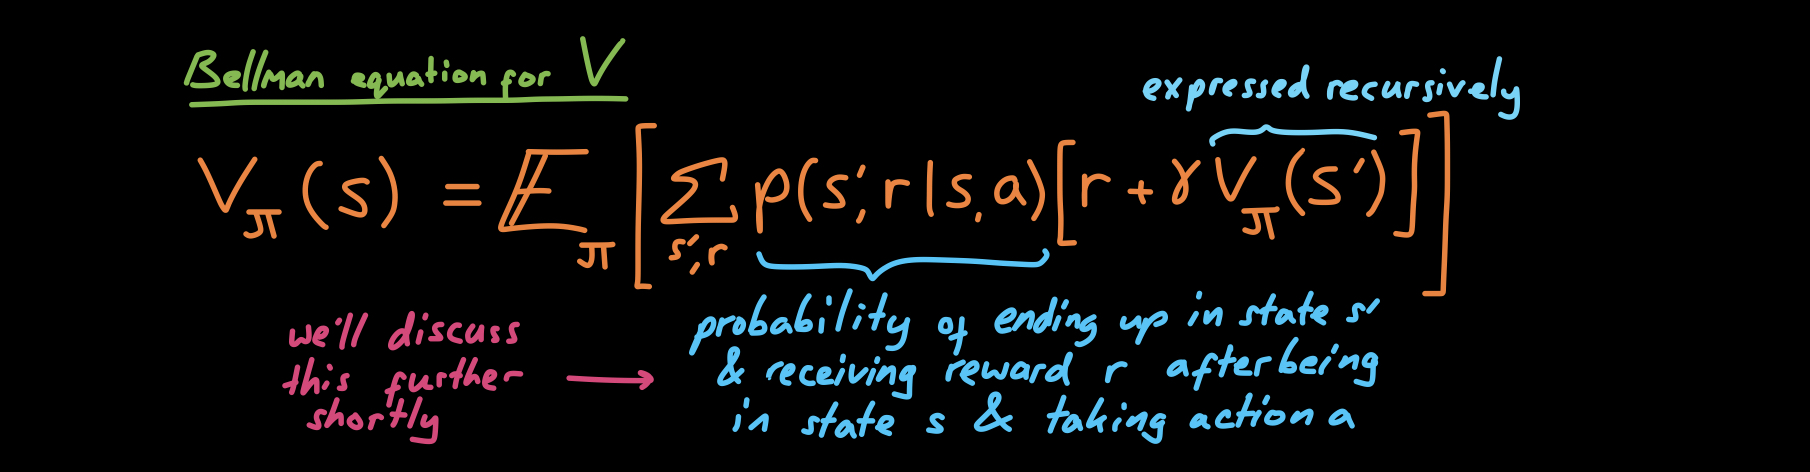 Bellman equation for V
expressed recursively
V_π(s) = 𝔼_π[∑_{s',r} p(s',r|s,a)[r + γV_π(s')]]
we'll discuss
this further
shortly
probability of ending up in state s'
& receiving reward r after being
in state s & taking action a